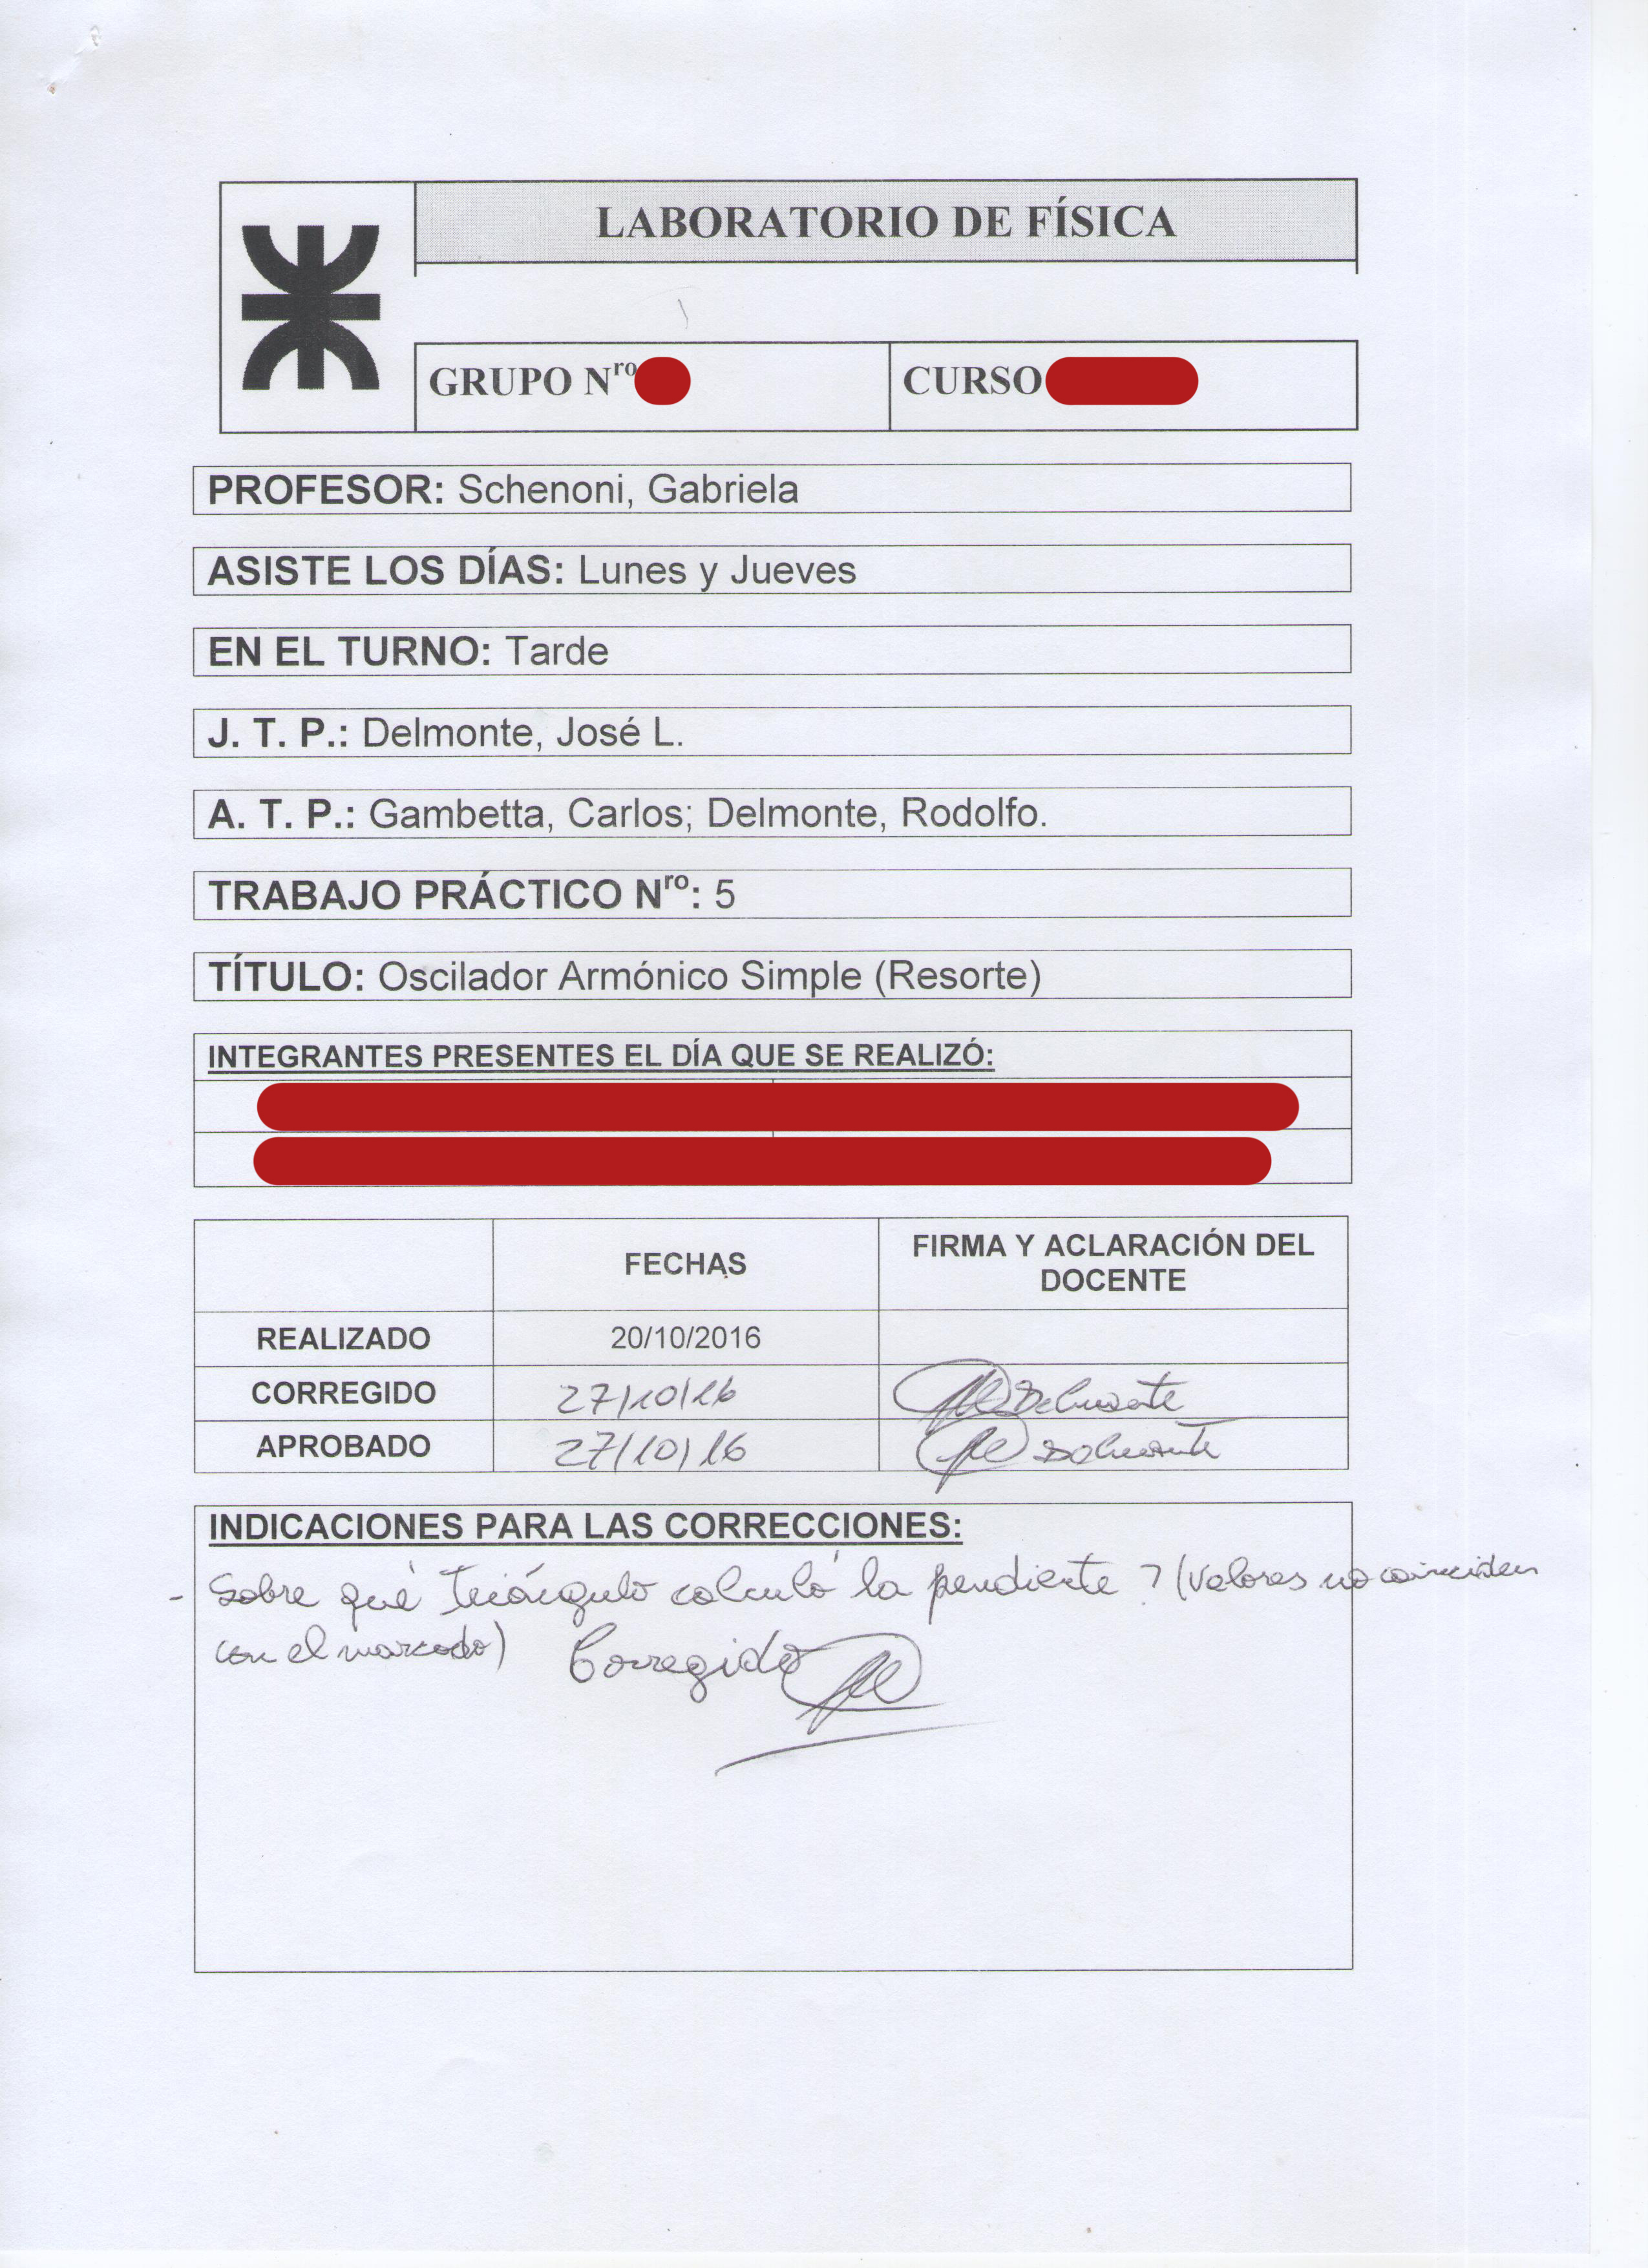 LABORATORIO DE FÍSICA
GRUPO Nro
CURSO
PROFESOR: Schenoni, Gabriela
ASISTE LOS DÍAS: Lunes y Jueves
EN EL TURNO: Tarde
J. T. P.: Delmonte, José L.
A. T. P.: Gambetta, Carlos; Delmonte, Rodolfo.
TRABAJO PRÁCTICO Nro: 5
TÍTULO: Oscilador Armónico Simple (Resorte)
INTEGRANTES PRESENTES EL DÍA QUE SE REALIZÓ:
FECHAS
FIRMA Y ACLARACIÓN DEL
DOCENTE
REALIZADO 20/10/2016
CORREGIDO 27/10/16 Delmonte
APROBADO 27/10/16 Delmonte
INDICACIONES PARA LAS CORRECCIONES:
- Sobre qué triángulo calculó la pendiente? (Valores no coinciden
con el marcado) Corregido